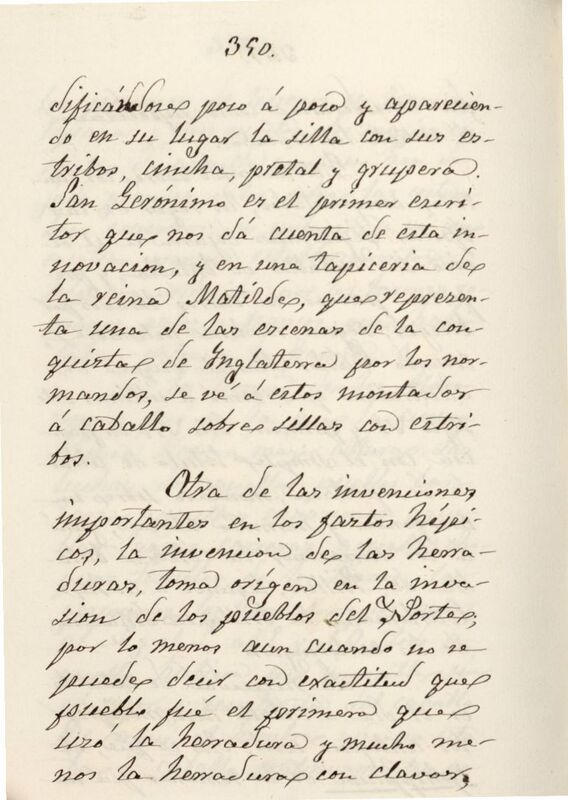 350.
dificándose poco á poco y aparecien-
do en su lugar la silla con sus es-
tribos, cincha, pretal y grupera.
San Gerónimo es el primer escri-
tor que nos dá cuenta de esta in-
novacion, y en una tapiceria de
la reina Matilde, que represen-
ta una de las escenas de la con-
quista de Inglaterra por los nor-
mandos, se vé á estos montados
á caballo sobre sillas con estri-
bos.
Otra de las invenciones
importantes en los fastos hípi-
cos, la invencion de las herra-
duras, toma orígen en la inva-
sion de los pueblos del Norte;
por lo menos aun cuando no se
puede decir con exactitud que
pueblo fué el primero que
usó la herradura y mucho me-
nos la herradura con clavos,